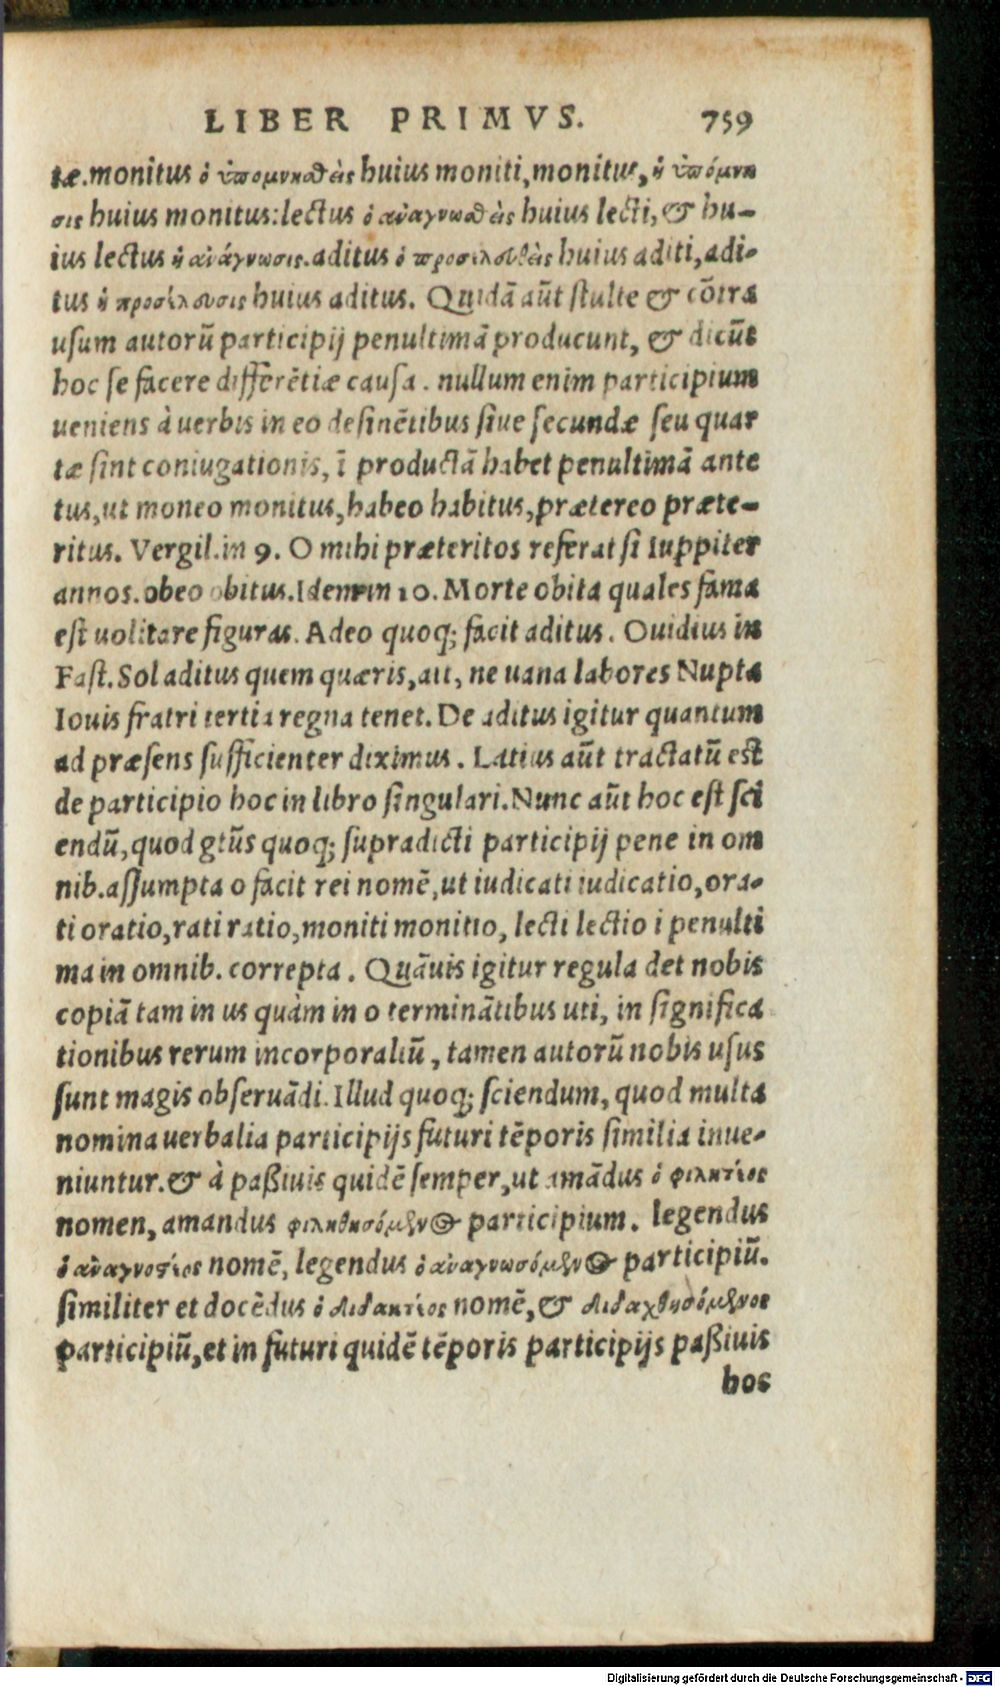 LIBER PRIMVS. 759
tæ. monitus ὁ ὑπομνηθεὶς huius moniti, monitus, ἡ ὑπόμνη
σις huius monitus: lectus ὁ ἀναγνωθεὶς huius lecti, & hu-
ius lectus ἡ ἀνάγνωσις. aditus ὁ προσελευθεὶς huius aditi, adi-
tus ἡ προσέλευσις huius aditus. Quidā aūt stulte & cōtra
usum autorū participij penultimā producunt, & dicūt
hoc se facere differētiæ causa. nullum enim participium
ueniens à uerbis in eo desinētibus siue secundæ seu quar
tæ sint coniugationis, ī productā habet penultimā ante
tus, ut moneo monitus, habeo habitus, prætereo præte-
ritus. Vergil. in 9. O mihi præteritos referat si Iuppiter
annos. obeo obitus. Idem in 10. Morte obita quales fama
est uolitare figuras. Adeo quoq; facit aditus. Ouidius in
Fast. Sol aditus quem quæris, ait, ne uana labores Nupta
Iouis fratri tertia regna tenet. De aditus igitur quantum
ad præsens sufficienter diximus. Latius aūt tractatū est
de participio hoc in libro singulari. Nunc aūt hoc est sci
endū, quod gtūs quoq; supradicti participij pene in om
nib. assumpta o facit rei nomē, ut iudicati iudicatio, ora-
ti oratio, rati ratio, moniti monitio, lecti lectio i penulti
ma in omnib. correpta. Quāuis igitur regula det nobis
copiā tam in us quàm in o terminātibus uti, in significa
tionibus rerum incorporaliū, tamen autorū nobis usus
sunt magis obseruādi. Illud quoq; sciendum, quod multa
nomina uerbalia participijs futuri tēporis similia inue-
niuntur. & à paßiuis quidē semper, ut amādus ὁ φιλητέος
nomen, amandus φιληθησόμενος participium. legendus
ὁ ἀναγνοστέος nomē, legendus ὁ ἀναγνωσόμενος participiū.
similiter et docēdus ὁ διδακτέος nomē, & διδαχθησόμενος
participiū, et in futuri quidē tēporis participijs paßiuis
hos
Digitalisierung gefördert durch die Deutsche Forschungsgemeinschaft - DFG